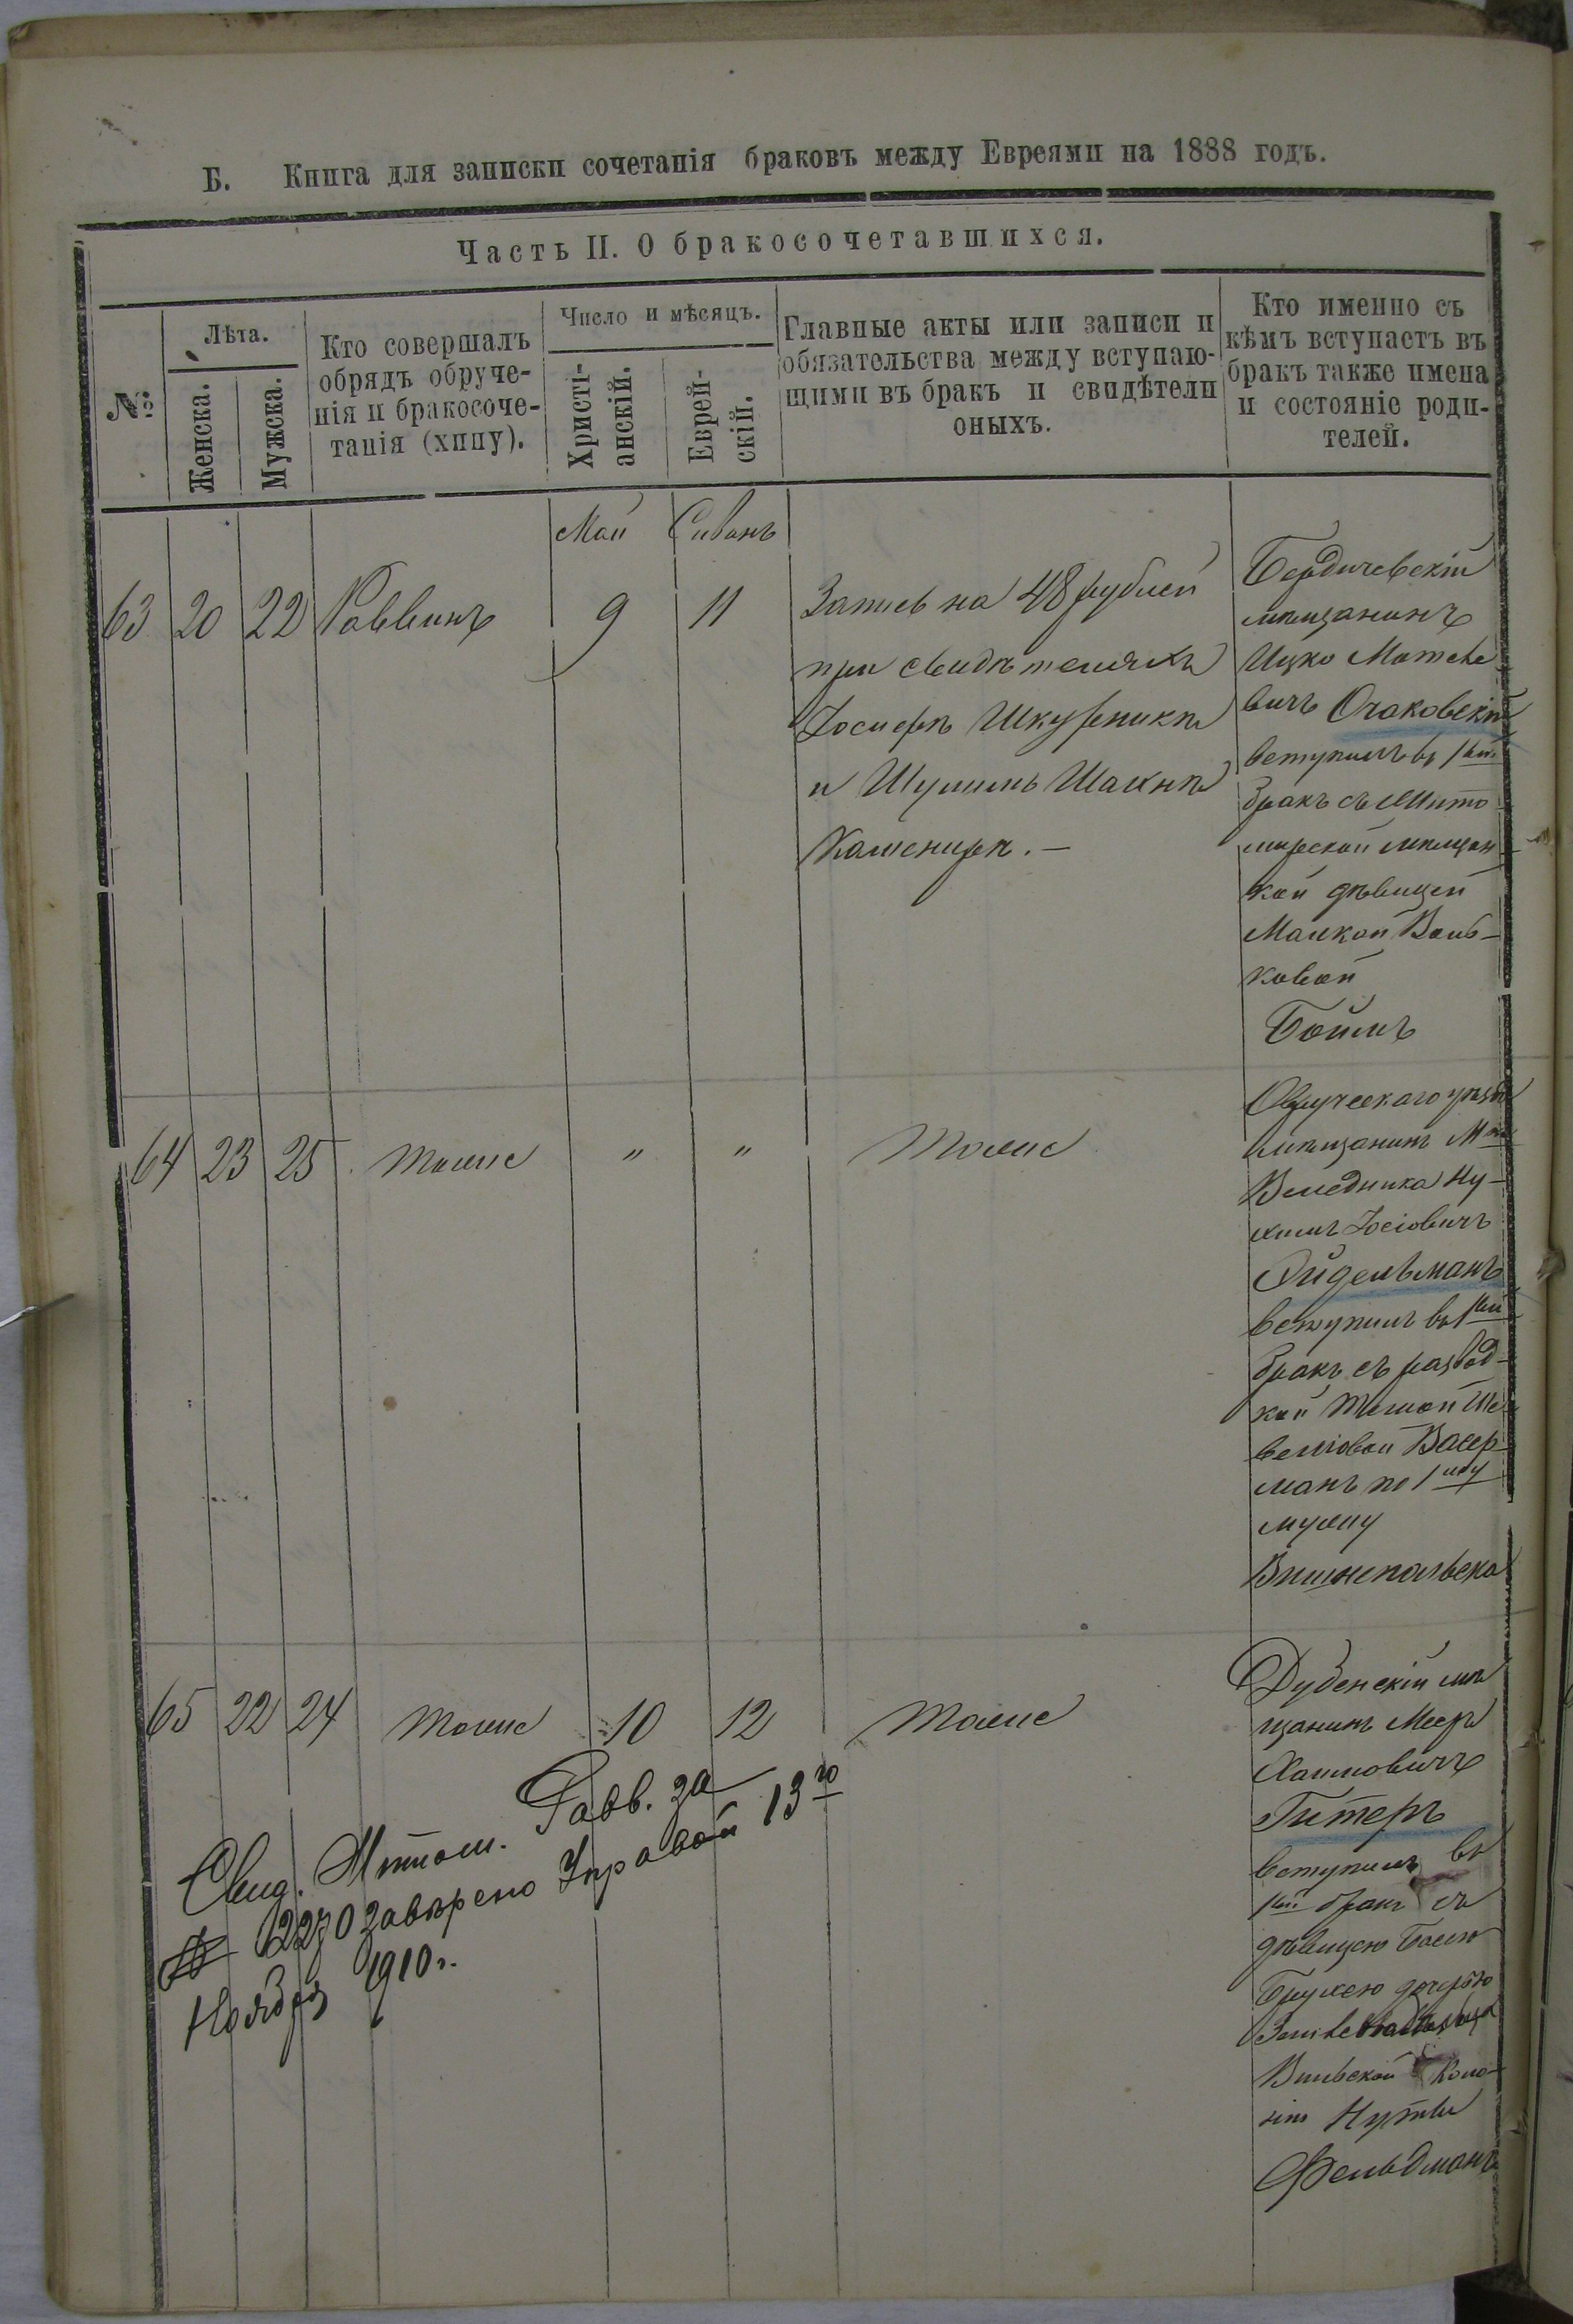 Б. Книга для записки сочетанія браковъ между Евреями на 1888 годъ.
Часть II. О бракосочетавшихся.
№
Лѣта.
Женска.
Мужска.
Кто совершалъ
обрядъ обруче-
нія и бракосоче-
танія (хиппу).
Число и мѣсяцъ.
Христі-
анскій.
Еврей-
скій.
Главные акты или записи и
обязательства между вступаю-
щими въ бракъ и свидѣтели
оныхъ.
Кто именно съ
кѣмъ вступаетъ въ
бракъ также имена
и состояніе роди-
телей.
Май Сиванъ
63 20 22 Раввинъ 9 11
Запись на 48 рублей
при свидѣтеляхъ
Іосифѣ Шкурникѣ
и Шулимѣ Шакнѣ
Каменирѣ. —
Бердичевскій
мѣщанинъ
Ицко Матве
вичъ Очаковскій
вступилъ въ 1ый
бракъ съ Жито
мирской мѣщан
кой дѣвицей
Малкой Воль-
ковой
Боймъ
64 23 25 тоже " " Тоже
Овручскаго уѣзда
мѣщанинъ М
Веледника Ну-
химъ Іосіовичъ
Эйдельманъ
вступилъ въ 1ый
бракъ съ развод-
кой
Васер-
манъ по 1му
мужу
65 22 24 тоже 10 12 Тоже
Дубенскій мѣ
щанинъ Меер
Хаимовичъ
Гитеръ
вступилъ въ
1ый бракъ съ
дѣвицею Басею
дочерью
Вильской Коло-
ніи
Фельдманъ
Свид. Житом. Равв. за
№ 2270 завѣрено Управой 13го
Ноября 1910г.